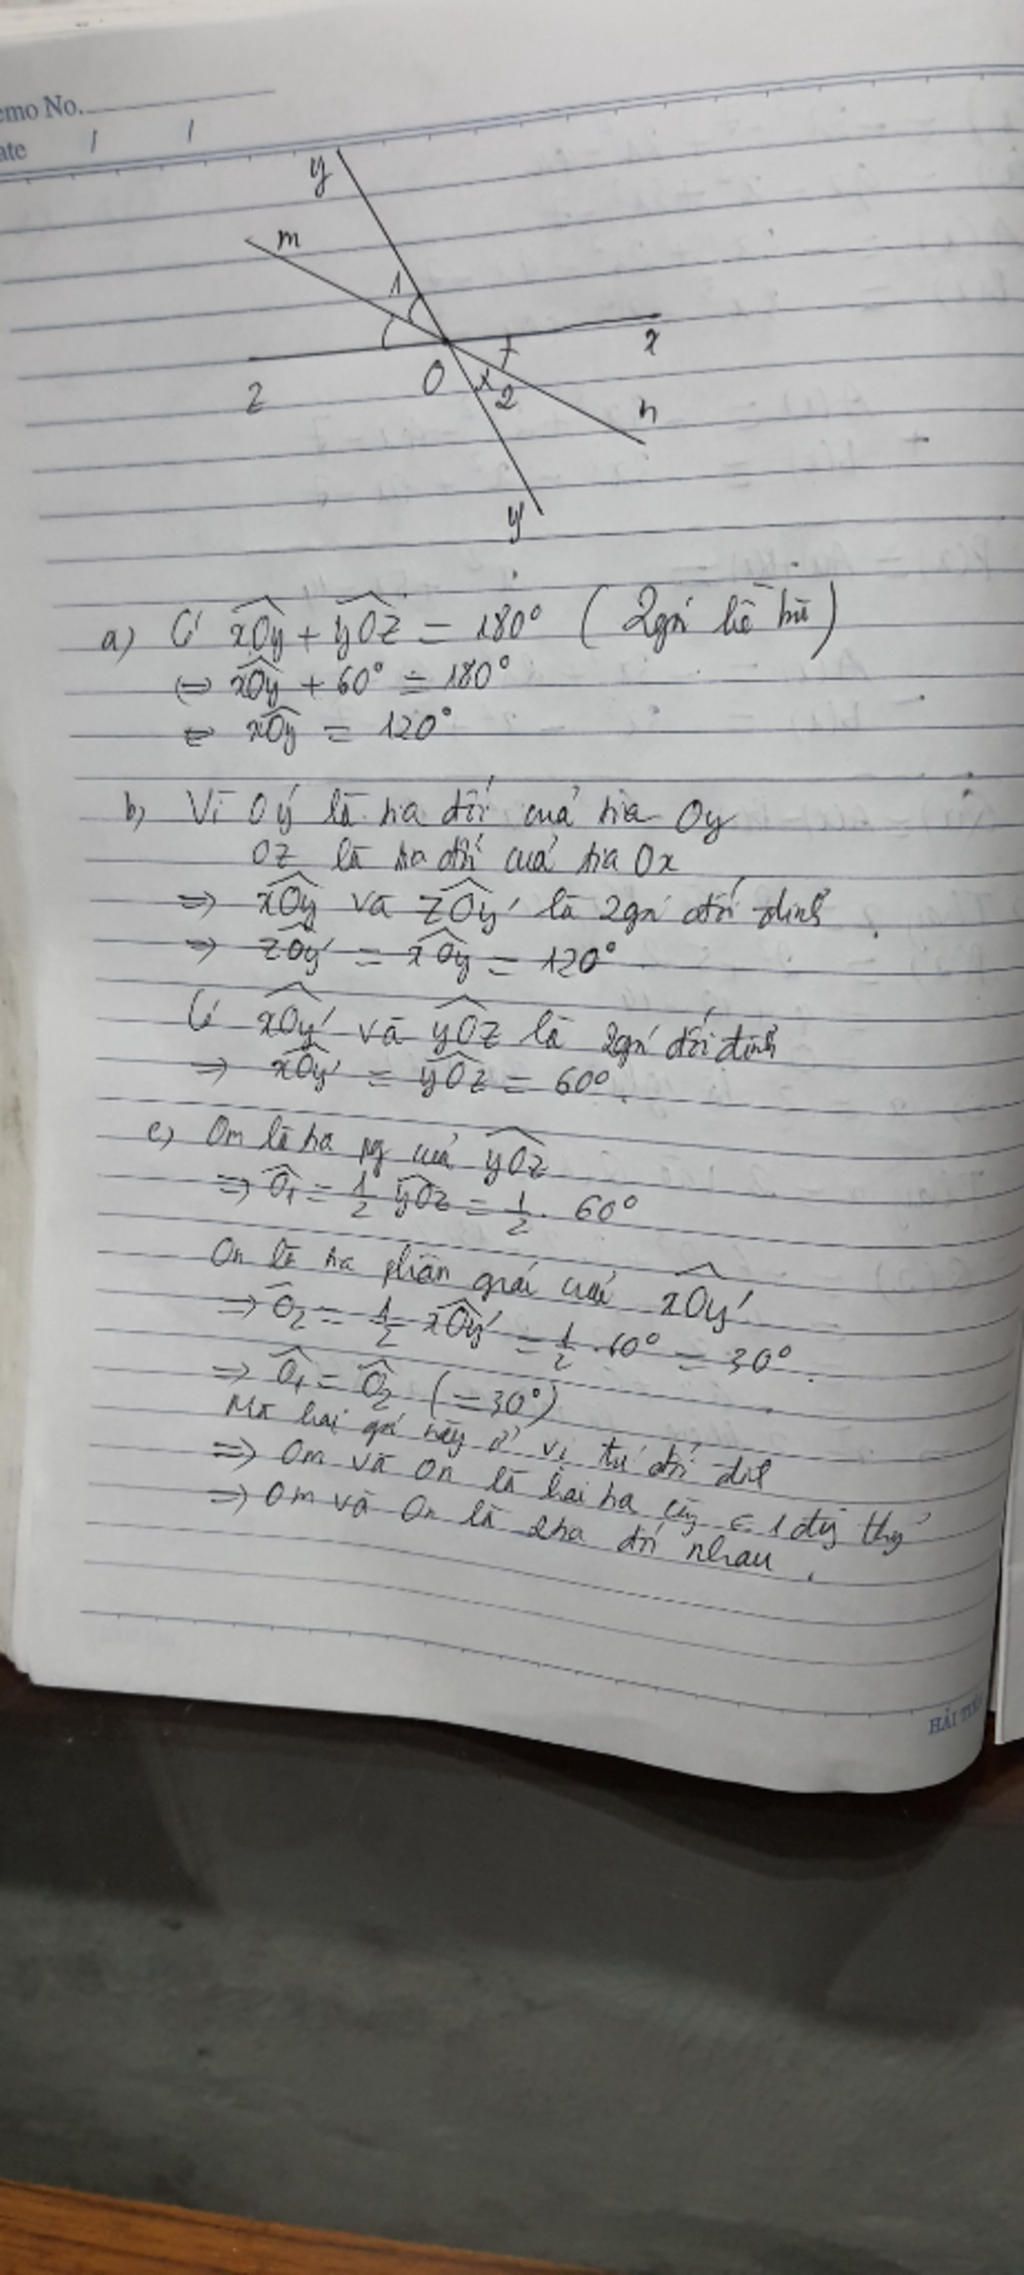 emo No.
ate / /
y
m
1
x
z
O
2
n
y'
a) Có xOy + yOz = 180° ( 2góc kề bù )
⇔ xOy + 60° = 180°
⇔ xOy = 120°
b) Vì Oy' là tia đối của tia Oy
Oz là tia đối của tia Ox
⇒ xOy và zOy' là 2góc đối đỉnh
⇒ zOy' = xOy = 120°
Có xOy' và yOz là 2góc đối đỉnh
⇒ xOy' = yOz = 60°.
c) Om là tia pg của yOz
⇒ O1 = 1/2 yOz = 1/2 . 60°
On là tia phân giác của xOy'
⇒ O2 = 1/2 xOy' = 1/2 . 60° = 30°.
⇒ O1 = O2 (= 30°)
Mà hai góc này ở vị trí đối đỉnh
⇒ Om và On là hai tia cùng ∈ 1 đg thg
⇒ Om và On là 2tia đối nhau .
HẢI TIẾ